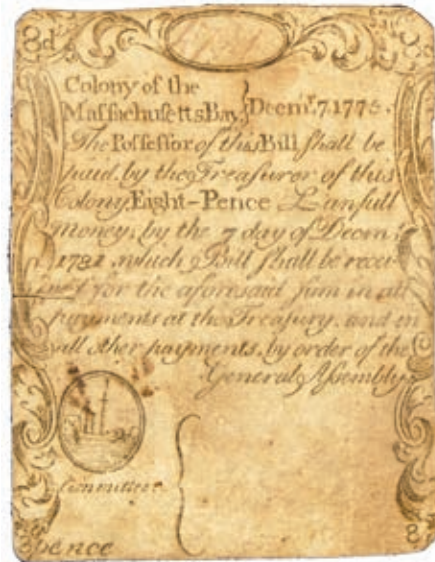 8d
8d
Colony of the
Massachusetts Bay } Decmr. 7 1775.
The Possessor of this Bill shall be
paid, by the Treasuror of this
Colony, Eight-Pence Lawfull
money, by the 7 day of Decmr.
1781 which Bill shall be recei-
ved for the aforesaid sum in all
payments at the Treasury, and in
all other payments, by order of the
General Assembly
Committee
pence
8